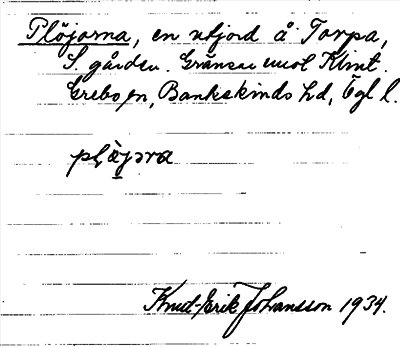 Plöjorna, en utjord å Torpa,
S. gården. Gränsar mot Klint.
Grebo sn, Bankekinds hd, Ögl l.
plö̀jɔra
Knut-Erik Johansson 1934.